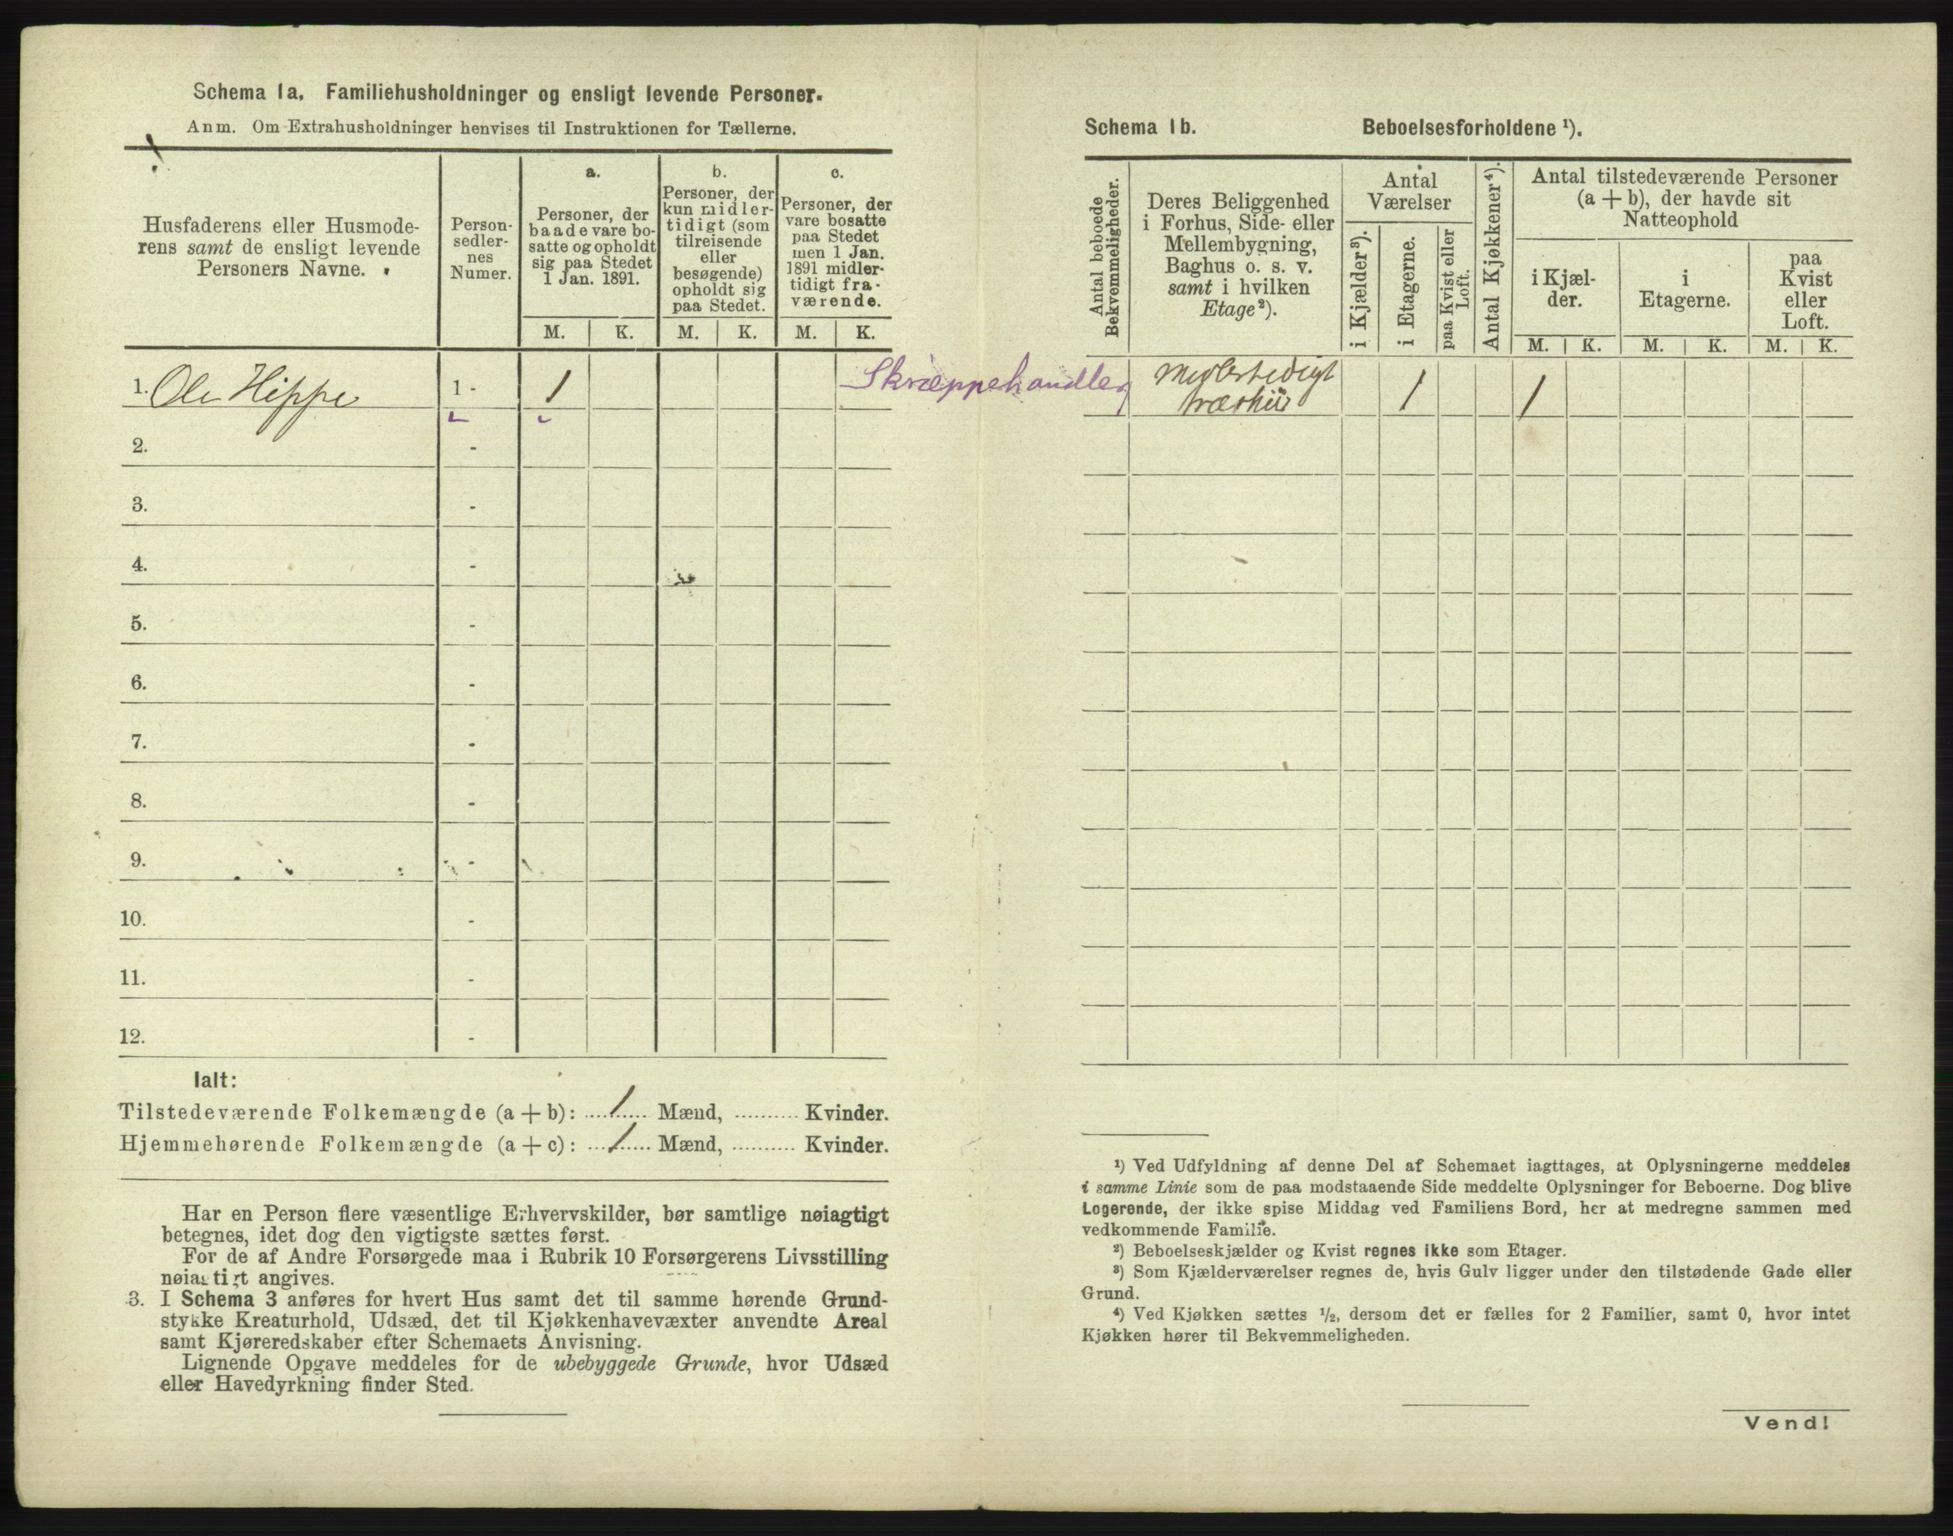 Schema 1a. Familiehusholdninger og ensligt levende Personer.
Anm. Om Extrahusholdninger henvises til Instruktionen for Tællerne.
Husfaderens eller Husmode-
rens samt de ensligt levende
Personers Navne.
Person-
sedler-
nes
Numer.
a.
Personer, der
baade vare bo-
satte og opholdt
sig paa Stedet
1 Jan. 1891.
b.
Personer, der
kun midler-
tidigt (som
tilreisende
eller
besøgende)
opholdt sig
paa Stedet.
c.
Personer, der
vare bosatte
paa Stedet
men 1 Jan.
1891 midler-
tidigt fra-
værende.
M. K. M. K. M. K.
1. Ole Hippe 1 - 1 Skræppehandler
2. -
3. -
4. -
5. -
6. -
7. -
8. -
9. -
10. -
11. -
12. -
Ialt:
Tilstedeværende Folkemængde (a + b): 1 Mænd, .......... Kvinder.
Hjemmehørende Folkemængde (a + c): 1 Mænd, .......... Kvinder.
Har en Person flere væsentlige Erhvervskilder, bør samtlige nøiagtigt
betegnes, idet dog den vigtigste sættes først.
For de af Andre Forsørgede maa i Rubrik 10 Forsørgerens Livsstilling
nøiagtigt angives.
3. I Schema 3 anføres for hvert Hus samt det til samme hørende Grund-
stykke Kreaturhold, Udsæd, det til Kjøkkenhavevæxter anvendte Areal
samt Kjøreredskaber efter Schemaets Anvisning.
Lignende Opgave meddeles for de ubebyggede Grunde, hvor Udsæd
eller Havedyrkning finder Sted.
Schema 1b. Beboelsesforholdene ¹).
Antal beboede
Bekvemmeligheder.
Deres Beliggenhed
i Forhus, Side- eller
Mellembygning,
Baghus o. s. v.
samt i hvilken
Etage ²).
Antal
Værelser
i Kjælder ³).
i Etagerne.
paa Kvist eller
Loft.
Antal Kjøkkener ⁴).
Antal tilstedeværende Personer
(a + b), der havde sit
Natteophold
i Kjæl-
der.
i
Etagerne.
paa
Kvist
eller
Loft.
M. K. M. K. M. K.
1 1
¹) Ved Udfyldning af denne Del af Schemaet iagttages, at Oplysningerne meddeles
i samme Linie som de paa modstaaende Side meddelte Oplysninger for Beboerne. Dog blive
Logerende, der ikke spise Middag ved Familiens Bord, her at medregne sammen med
vedkommende Familie.
²) Beboelseskjælder og Kvist regnes ikke som Etager.
³) Som Kjælderværelser regnes de, hvis Gulv ligger under den tilstødende Gade eller
Grund.
⁴) Ved Kjøkken sættes ½, dersom det er fælles for 2 Familier, samt 0, hvor intet
Kjøkken hører til Bekvemmeligheden.
Vend!